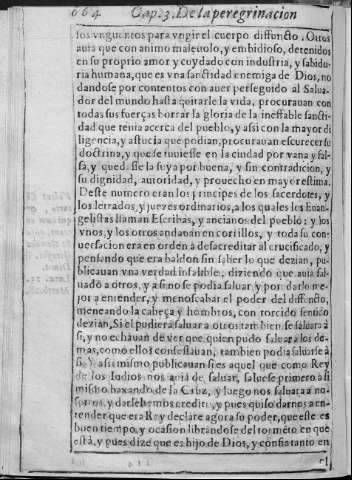 664 Cap. 3. De la peregrinacion
los vnguentos para vngir el cuerpo diffuncto. Otros
auia que con animo maleuolo, y embidioso, detenidos
en su proprio amor y cuydado con industria, y sabidu
ria humana, que es vna sanctidad enemiga de Dios, no
dandose por contentos con auer perseguido al Salua-
dor del mundo hasta quitarle la vida, procurauan con
todas sus fuerças borrar la gloria de la ineffable sancti-
dad que tenia acerca del pueblo, y assi con la mayor di
ligencia, y astucia que podian, procurauan escurecer su
doctrina, y que se tuuiesse en la ciudad por vana y fal-
sa, y qued sse la suya por buena, y sin contradicion, y
su dignidad, autoridad, y prouecho en mayor estima.
Deste numero eran los principes de los sacerdotes, y
los letrados, y juezes ordinarios, a los quales los Euan-
gelistas llaman Escribas, y ancianos del pueblo: y los
vnos, y los otros andauan en corrillos, y toda su con-
uersacion era en orden a desacreditar al crucificado, y
pensando que era baldon sin saber lo que dezian, pu-
blicauan vna verdad infalible, diziendo que auia sal-
uado a otros, y assi no se podia saluar y por darlo me-
jor a entender, y menoscabar el poder del diffuncto,
meneando la cabeça y hombros, con torcido sentido
dezian, Si el pudiera saluar a otros tambien se saluara à
si, y no echauan de ver que quien pudo saluar a los de-
mas, como ellos confessauan, tambien podia saluarse à
si. Y assi mismo publicauan si es aquel que como Rey
de los Iudios nos auia de saluar, saluese primero a si
mismo baxando de la Cruz, y luego nos saluara a no-
sotros, y darselehemos credito, y pues quiso darnos a en-
tender que era Rey declare agora so poder, que este es
buen tiempo, y ocasion librandose del tormẽto en que
està, y pues dize que es hijo de Dios, y confia tanto en
el